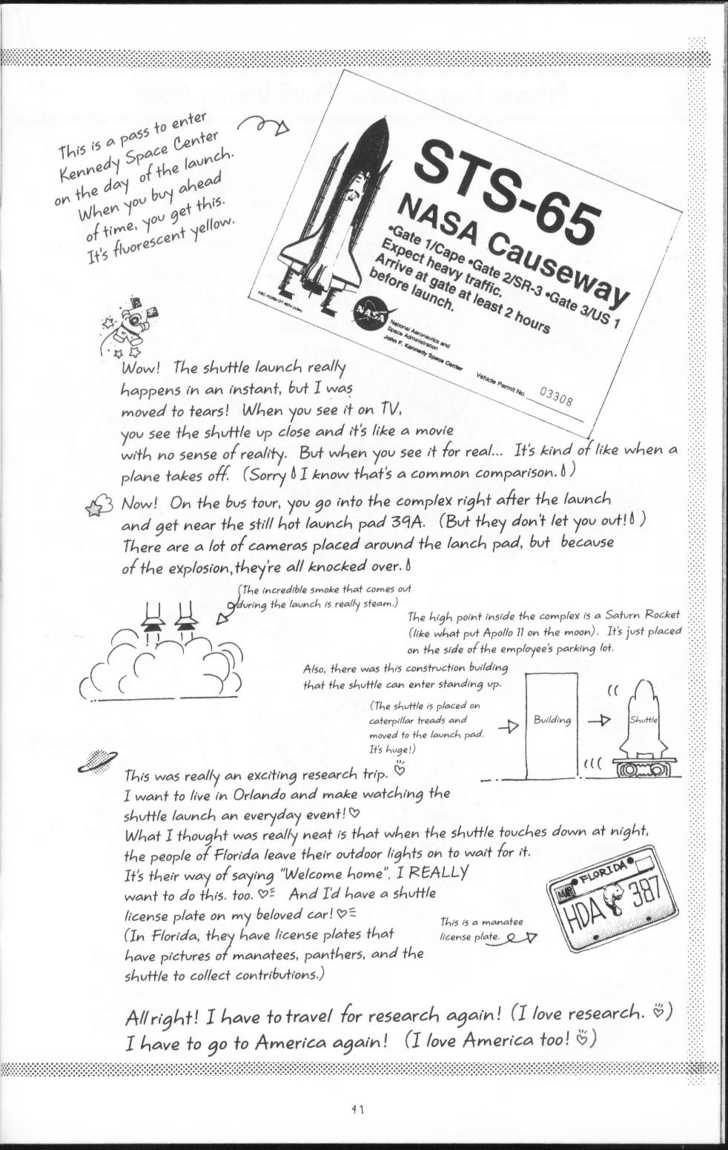 This is a pass to enter
Kennedy Space Center
on the day of the launch.
When you buy ahead
of time, you get this.
It's fluorescent yellow.
STS-65
NASA Causeway
•Gate 1/Cape •Gate 2/SR-3 •Gate 3/US 1
Expect heavy traffic.
Arrive at gate at least 2 hours
before launch.
NASA
National Aeronautics and
Space Administration
John F. Kennedy Space Center
Vehicle Permit No. 03308
Wow! The shuttle launch really
happens in an instant, but I was
moved to tears! When you see it on TV,
you see the shuttle up close and it's like a movie
with no sense of reality. But when you see it for real... It's kind of like when a
plane takes off. (Sorry I know that's a common comparison.)
Now! On the bus tour, you go into the complex right after the launch
and get near the still hot launch pad 39A. (But they don't let you out!)
There are a lot of cameras placed around the lanch pad, but because
of the explosion, they're all knocked over.
(The incredible smoke that comes out
during the launch is really steam.)
The high point inside the complex is a Saturn Rocket
(like what put Apollo 11 on the moon). It's just placed
on the side of the employee's parking lot.
Also, there was this construction building
that the shuttle can enter standing up.
(The shuttle is placed on
caterpillar treads and
moved to the launch pad.
It's huge!)
Building
Shuttle
This was really an exciting research trip. ♡
I want to live in Orlando and make watching the
shuttle launch an everyday event! ♡
What I thought was really neat is that when the shuttle touches down at night,
the people of Florida leave their outdoor lights on to wait for it.
It's their way of saying "Welcome home". I REALLY
want to do this. too. ♡ And I'd have a shuttle
license plate on my beloved car! ♡
(In Florida, they have license plates that
have pictures of manatees, panthers, and the
shuttle to collect contributions.)
This is a manatee
license plate.
FLORIDA
HDA 387
All right! I have to travel for research again! (I love research. ♡)
I have to go to America again! (I love America too! ♡)
41